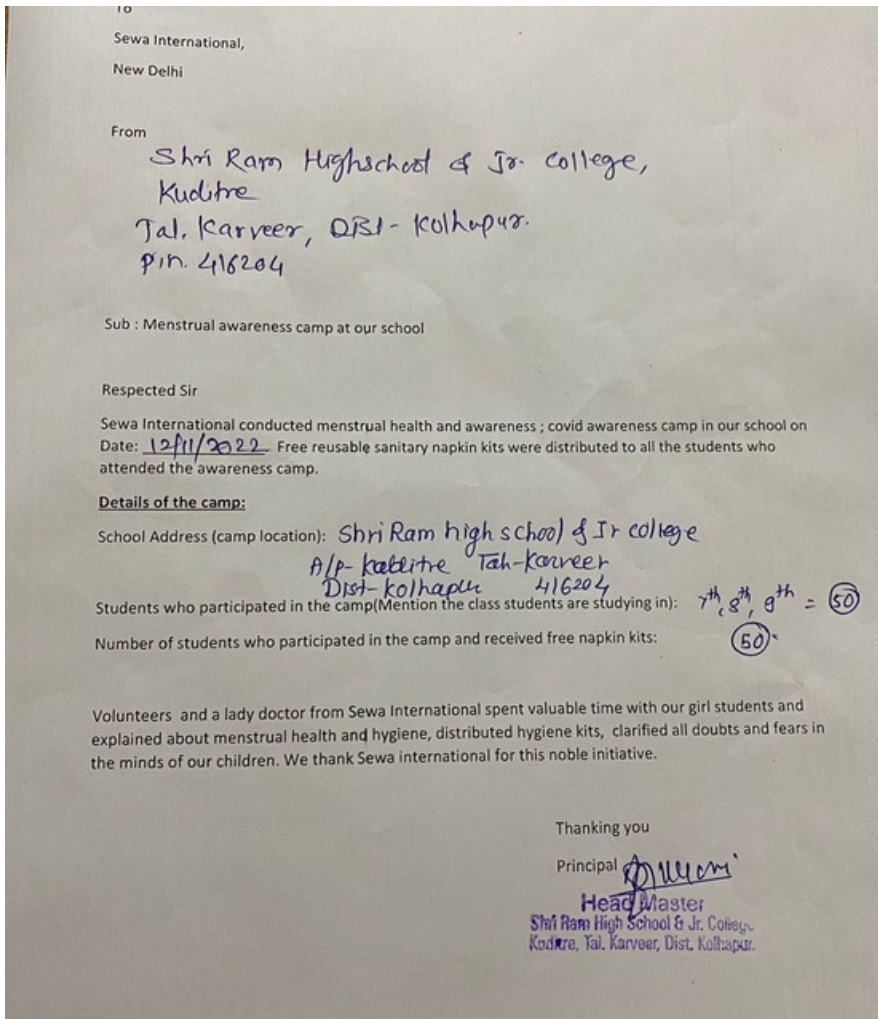 To
Sewa International,
New Delhi
From
Shri Ram Highschool & Jr. College,
Kuditre
Tal. Karveer, Dist - Kolhapur.
Pin. 416204
Sub : Menstrual awareness camp at our school
Respected Sir
Sewa International conducted menstrual health and awareness ; covid awareness camp in our school on
Date: 12/11/2022 Free reusable sanitary napkin kits were distributed to all the students who
attended the awareness camp.
Details of the camp:
School Address (camp location): Shri Ram high school & Jr college
A/p- Tah-Karveer
Dist-Kolhapur 416204
Students who participated in the camp(Mention the class students are studying in): 7th, 8th, 9th = 50
Number of students who participated in the camp and received free napkin kits: 50
Volunteers and a lady doctor from Sewa International spent valuable time with our girl students and
explained about menstrual health and hygiene, distributed hygiene kits, clarified all doubts and fears in
the minds of our children. We thank Sewa international for this noble initiative.
Thanking you
Principal
Head Master
Shri Ram High School & Jr. College
Kuditre, Tal. Karveer, Dist. Kolhapur.